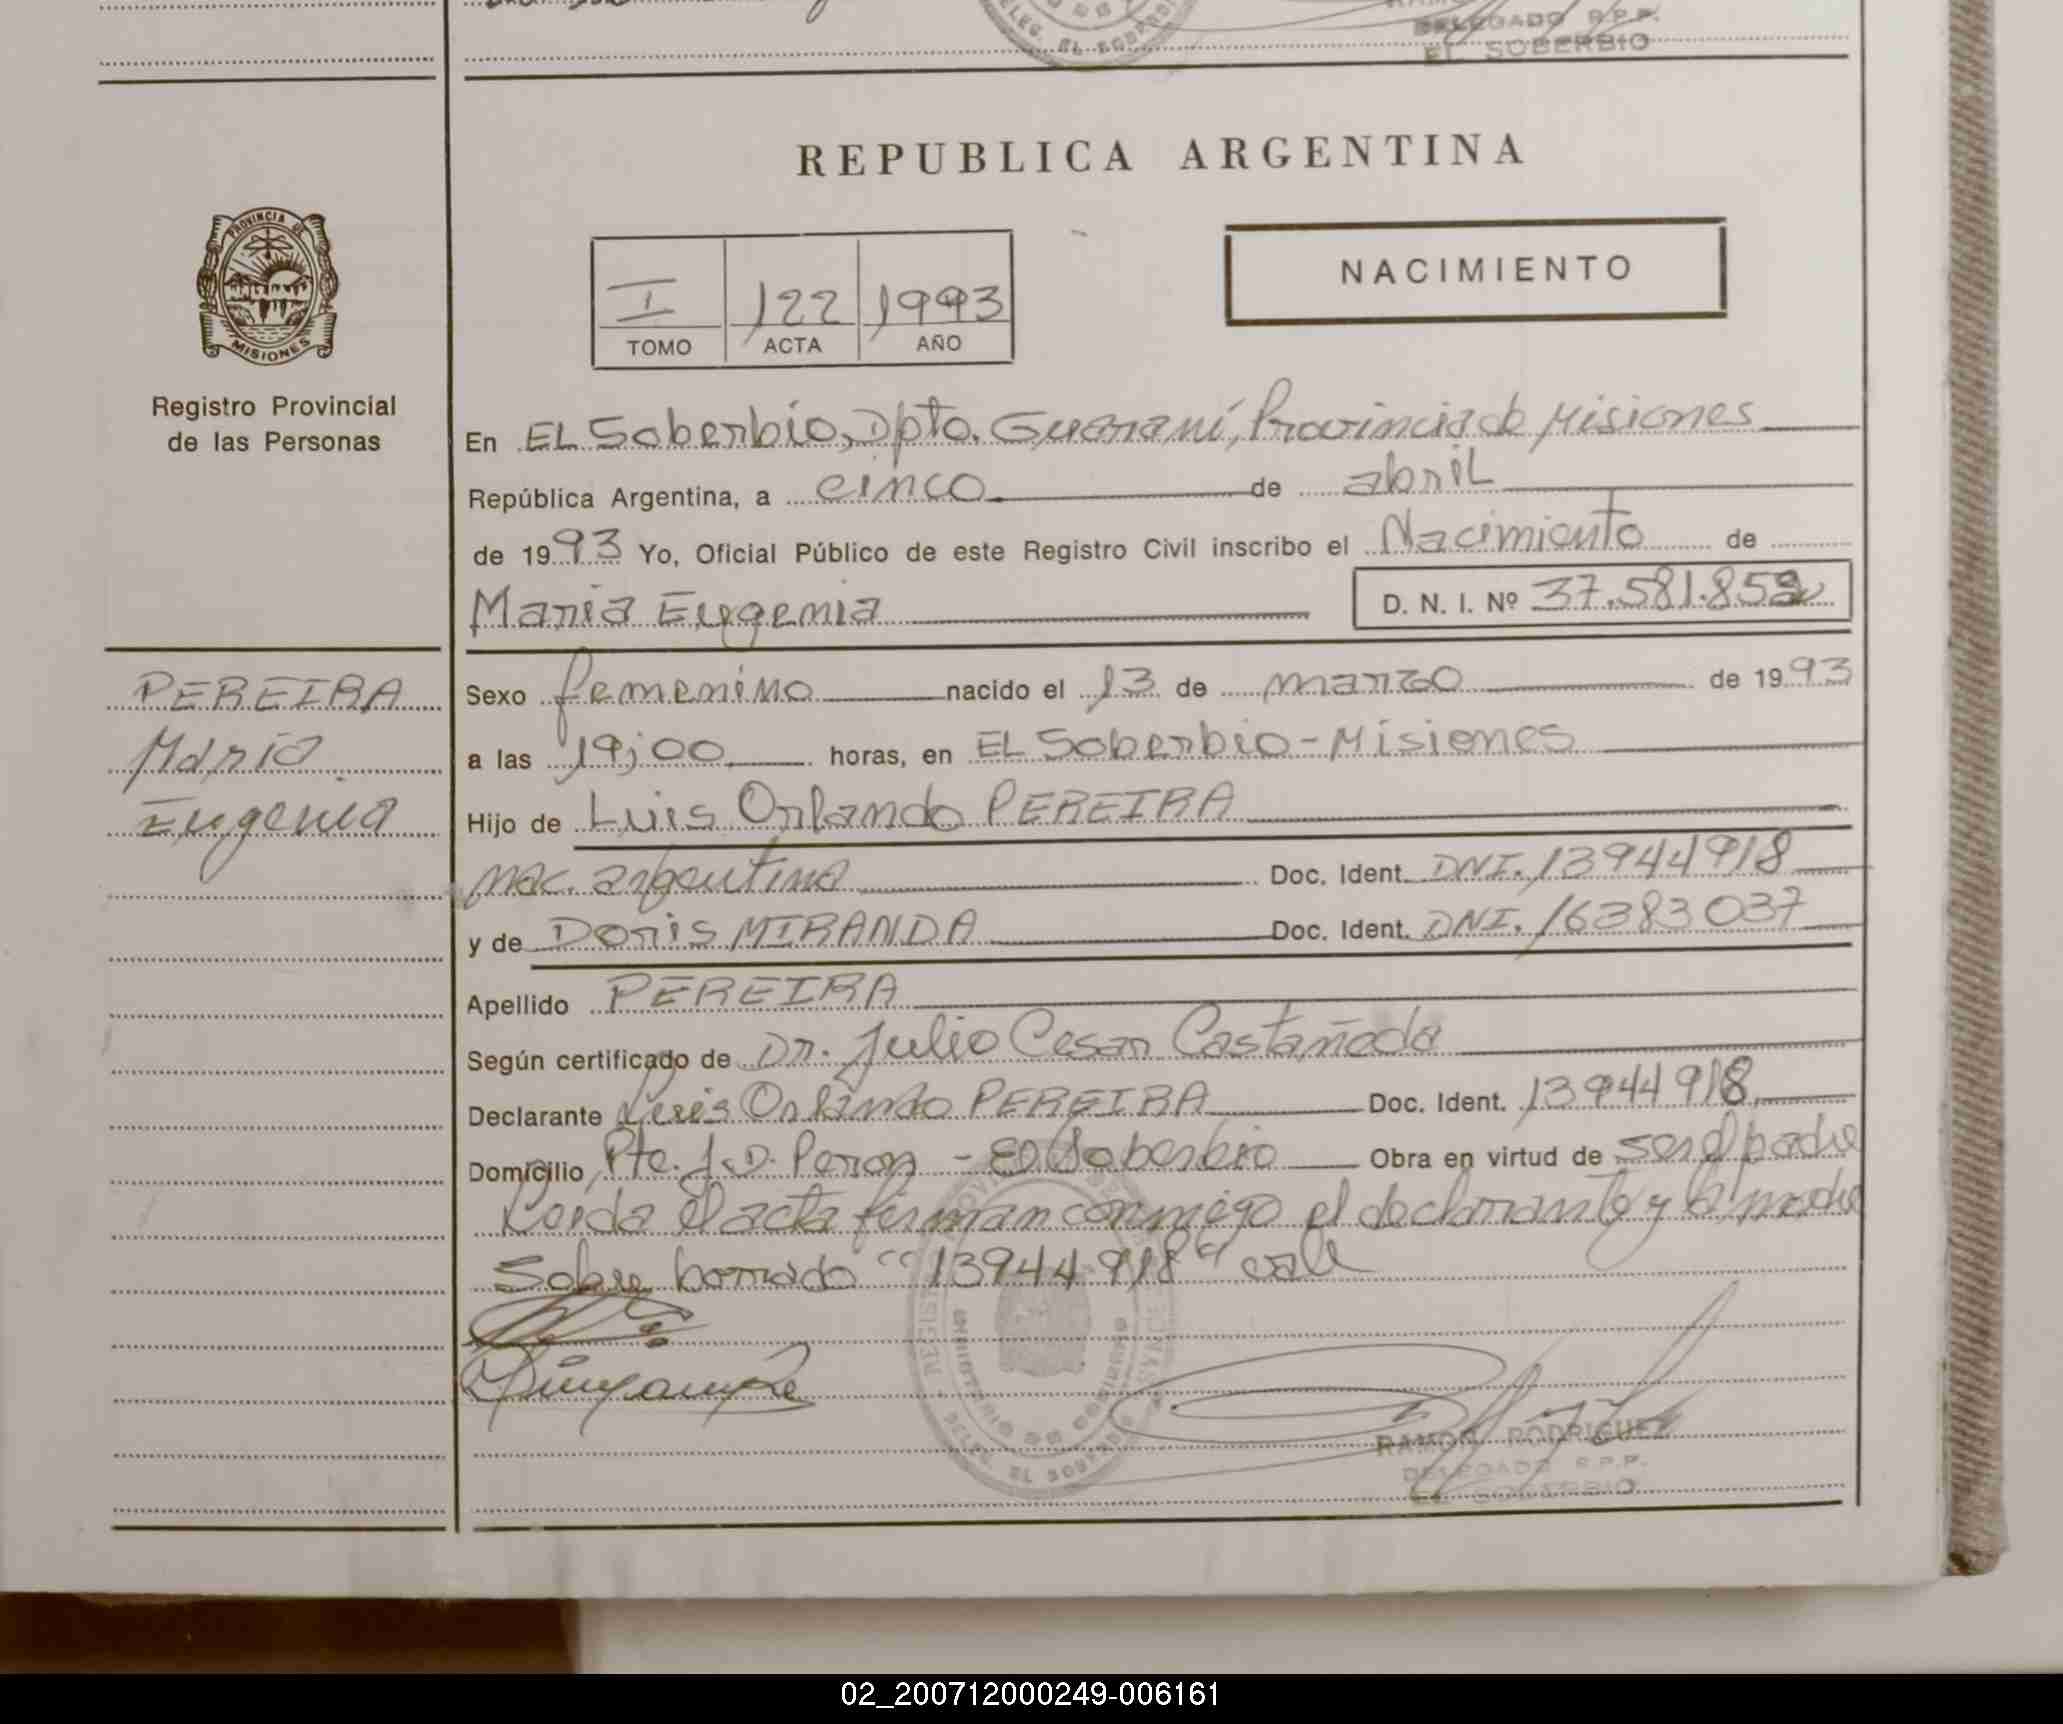 DELEGADO R.P.P.
EL SOBERBIO
DELEG. EL SOBERBIO
REPUBLICA ARGENTINA
PROVINCIA DE
MISIONES
Registro Provincial
de las Personas
I 122 1993
TOMO ACTA AÑO
NACIMIENTO
En EL Soberbio, Dpto. Guaraní, Provincia de Misiones
República Argentina, a cinco de abril
de 1993 Yo, Oficial Público de este Registro Civil inscribo el Nacimiento de
Maria Eugenia D. N. I. Nº 37.581.852
PEREIRA
Maria
Eugenia
Sexo femenino nacido el 13 de marzo de 1993
a las 19;00 horas, en EL Soberbio - Misiones
Hijo de Luis Orlando PEREIRA
nac. argentina Doc. Ident. DNI. 13944918
y de Doris MIRANDA Doc. Ident. DNI. 16383037
Apellido PEREIRA
Según certificado de Dr. Julio Cesar Castañeda
Declarante Luis Orlando PEREIRA Doc. Ident. 13944918
Domicilio Pte. J.D. Peron - El Soberbio Obra en virtud de ser el padre
Leida el acta firman conmigo el declarante y la madre
Sobre borrado "13944918" vale
DELEG. EL SOBERBIO
RAMON RODRIGUEZ
DELEGADO R.P.P.
EL SOBERBIO
02_200712000249-006161